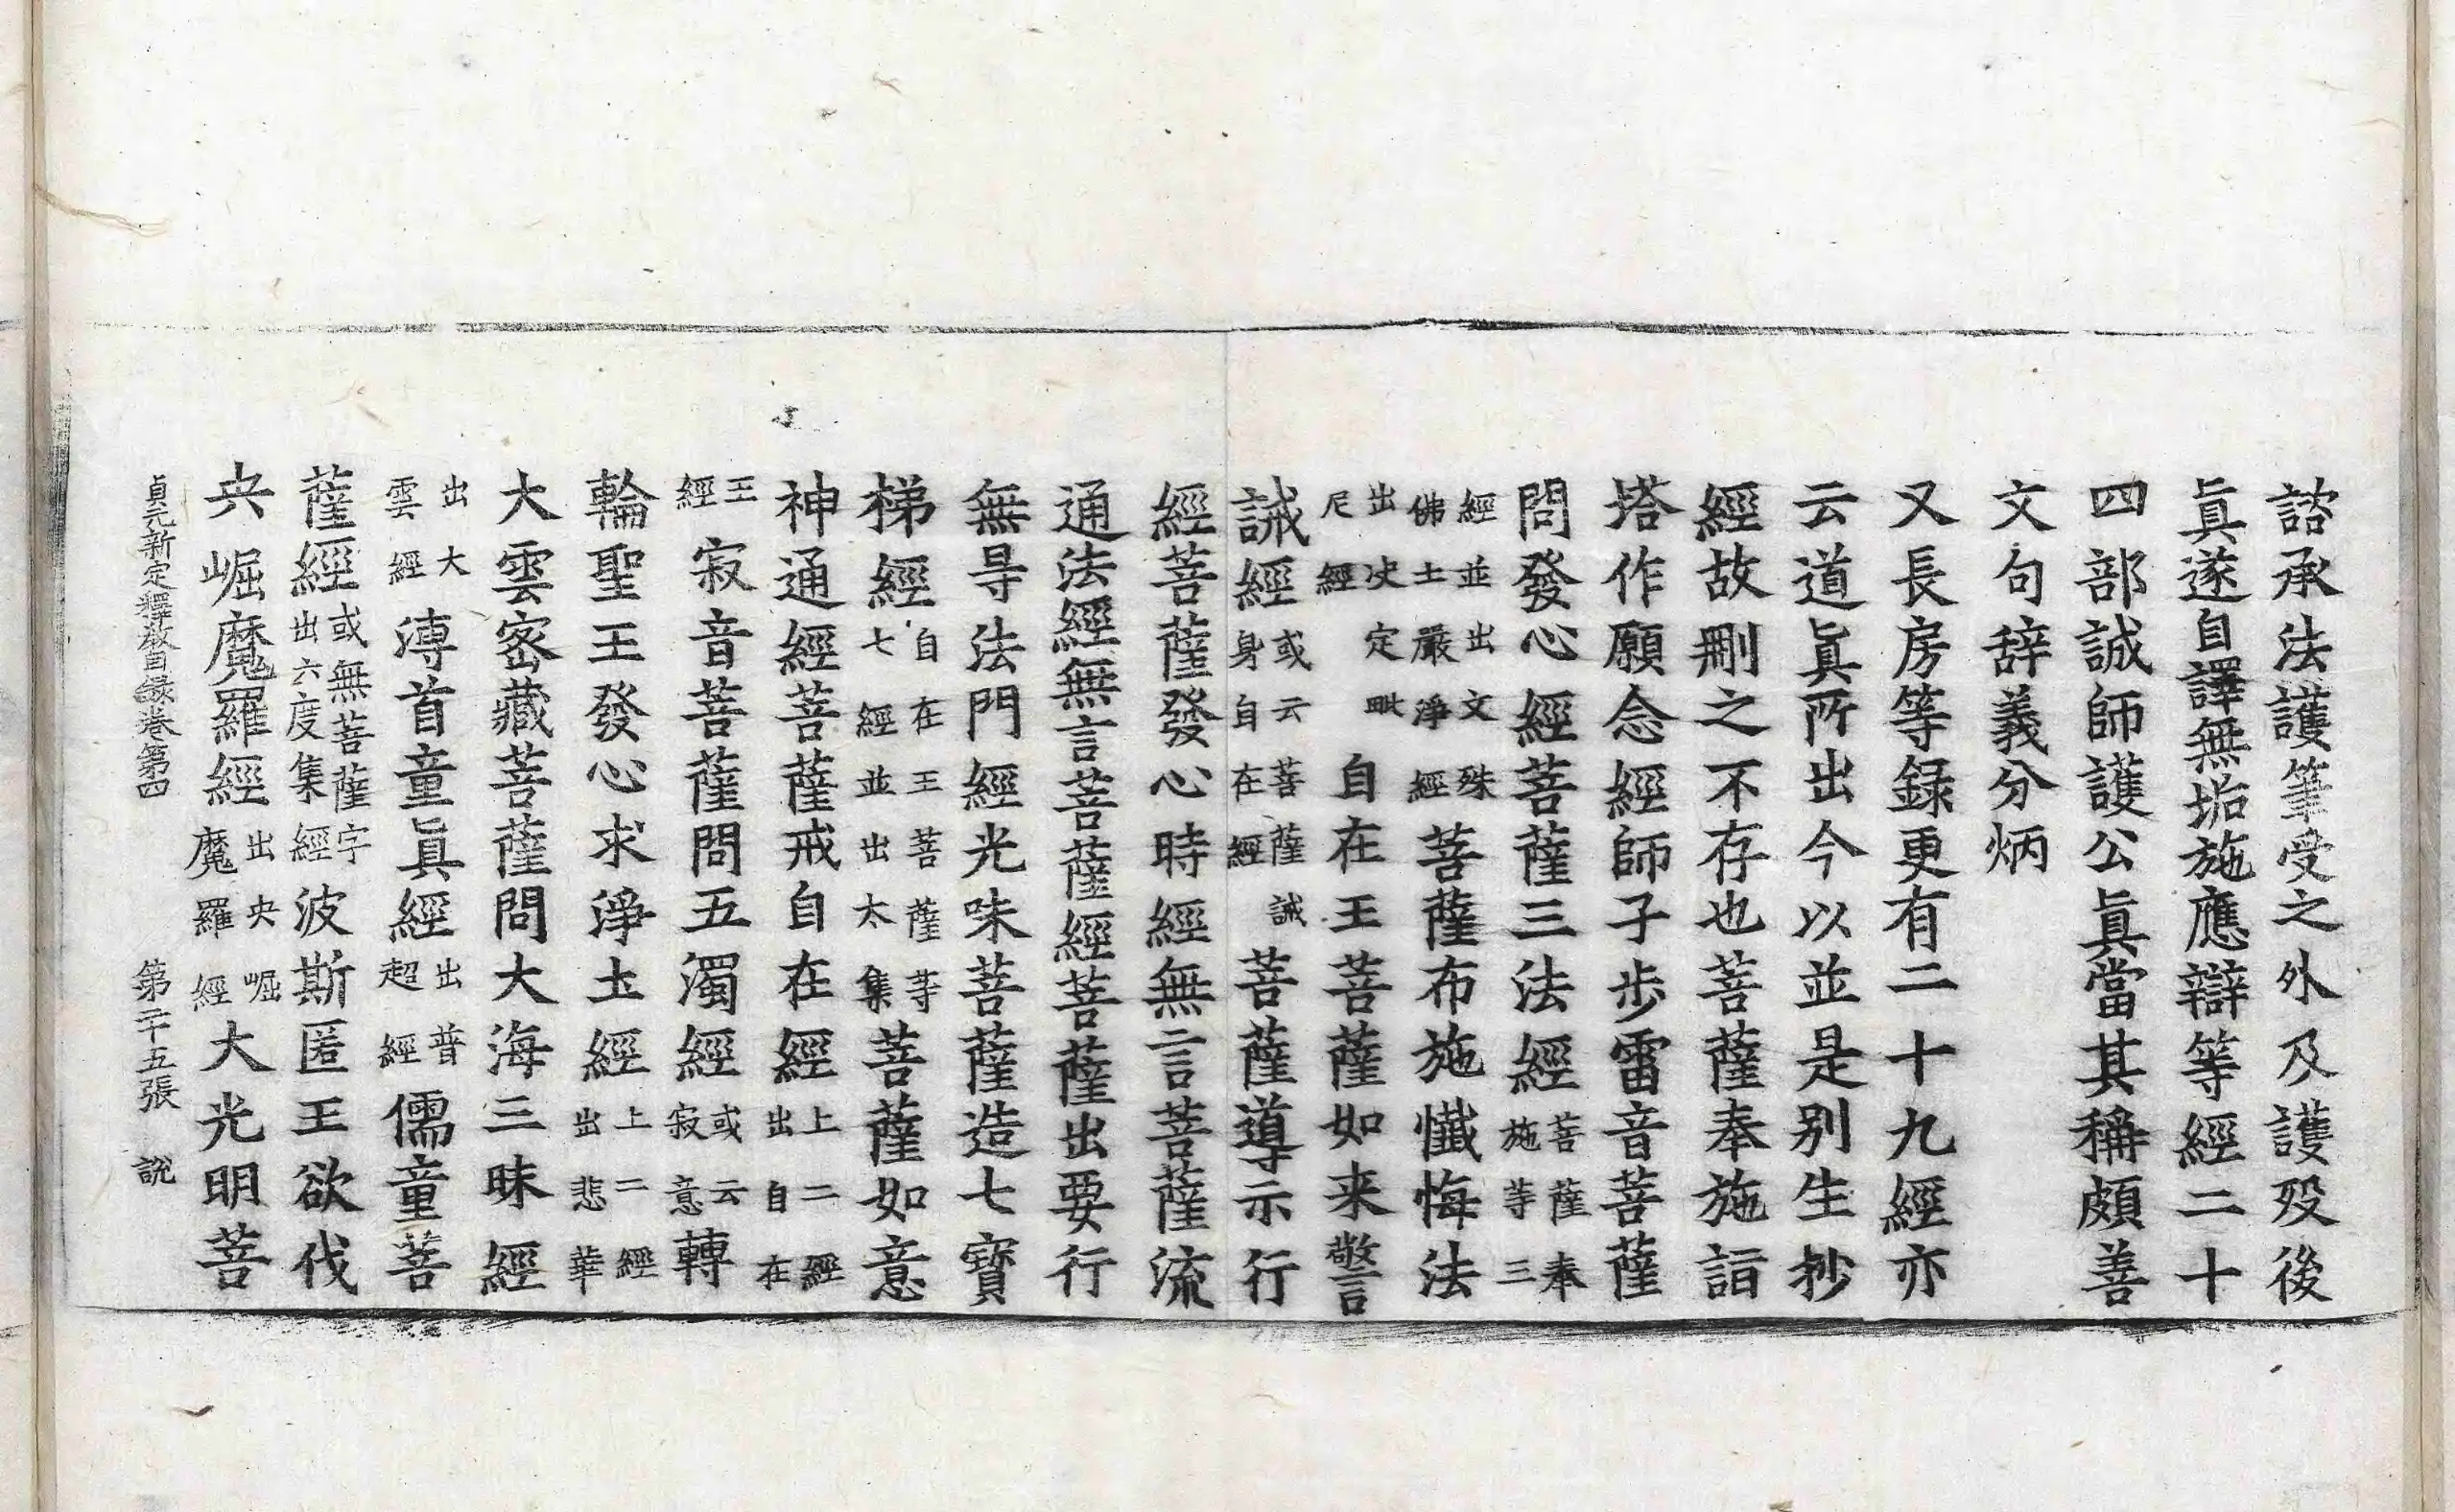 諮承法護筆受之外及護歿後
眞遂自譯無垢施應辯等經二十
四部誠師護公眞當其稱頗善
文句辞義分炳
又長房等録更有二十九經亦
云道眞所出今以並是別生抄
經故刪之不存也菩薩奉施詣
塔作願念經師子歩雷音菩薩
問發心經菩薩三法經菩薩奉施等三
經並出文殊佛土嚴淨經菩薩布施懺悔法
出决定毗尼經自在王菩薩如来警
誡經或云菩薩誡身自在經菩薩導示行
經菩薩發心時經無言菩薩流
通法經無言菩薩經菩薩出要行
無㝵法門經光味菩薩造七寶
梯經自在王菩薩等七經並出太集菩薩如意
神通經菩薩戒自在經上二經出自在
王經寂音菩薩問五濁經或云寂意轉
輪聖王發心求淨土經上二經出悲華
大雲密藏菩薩問大海三昧經
出大雲經溥首童眞經出普超經儒童菩
薩經或無菩薩字出六度集經波斯匿王欲伐
央崛魔羅經出央崛魔羅經大光明菩
貞元新定釋教目録卷第四 第二十五張 説